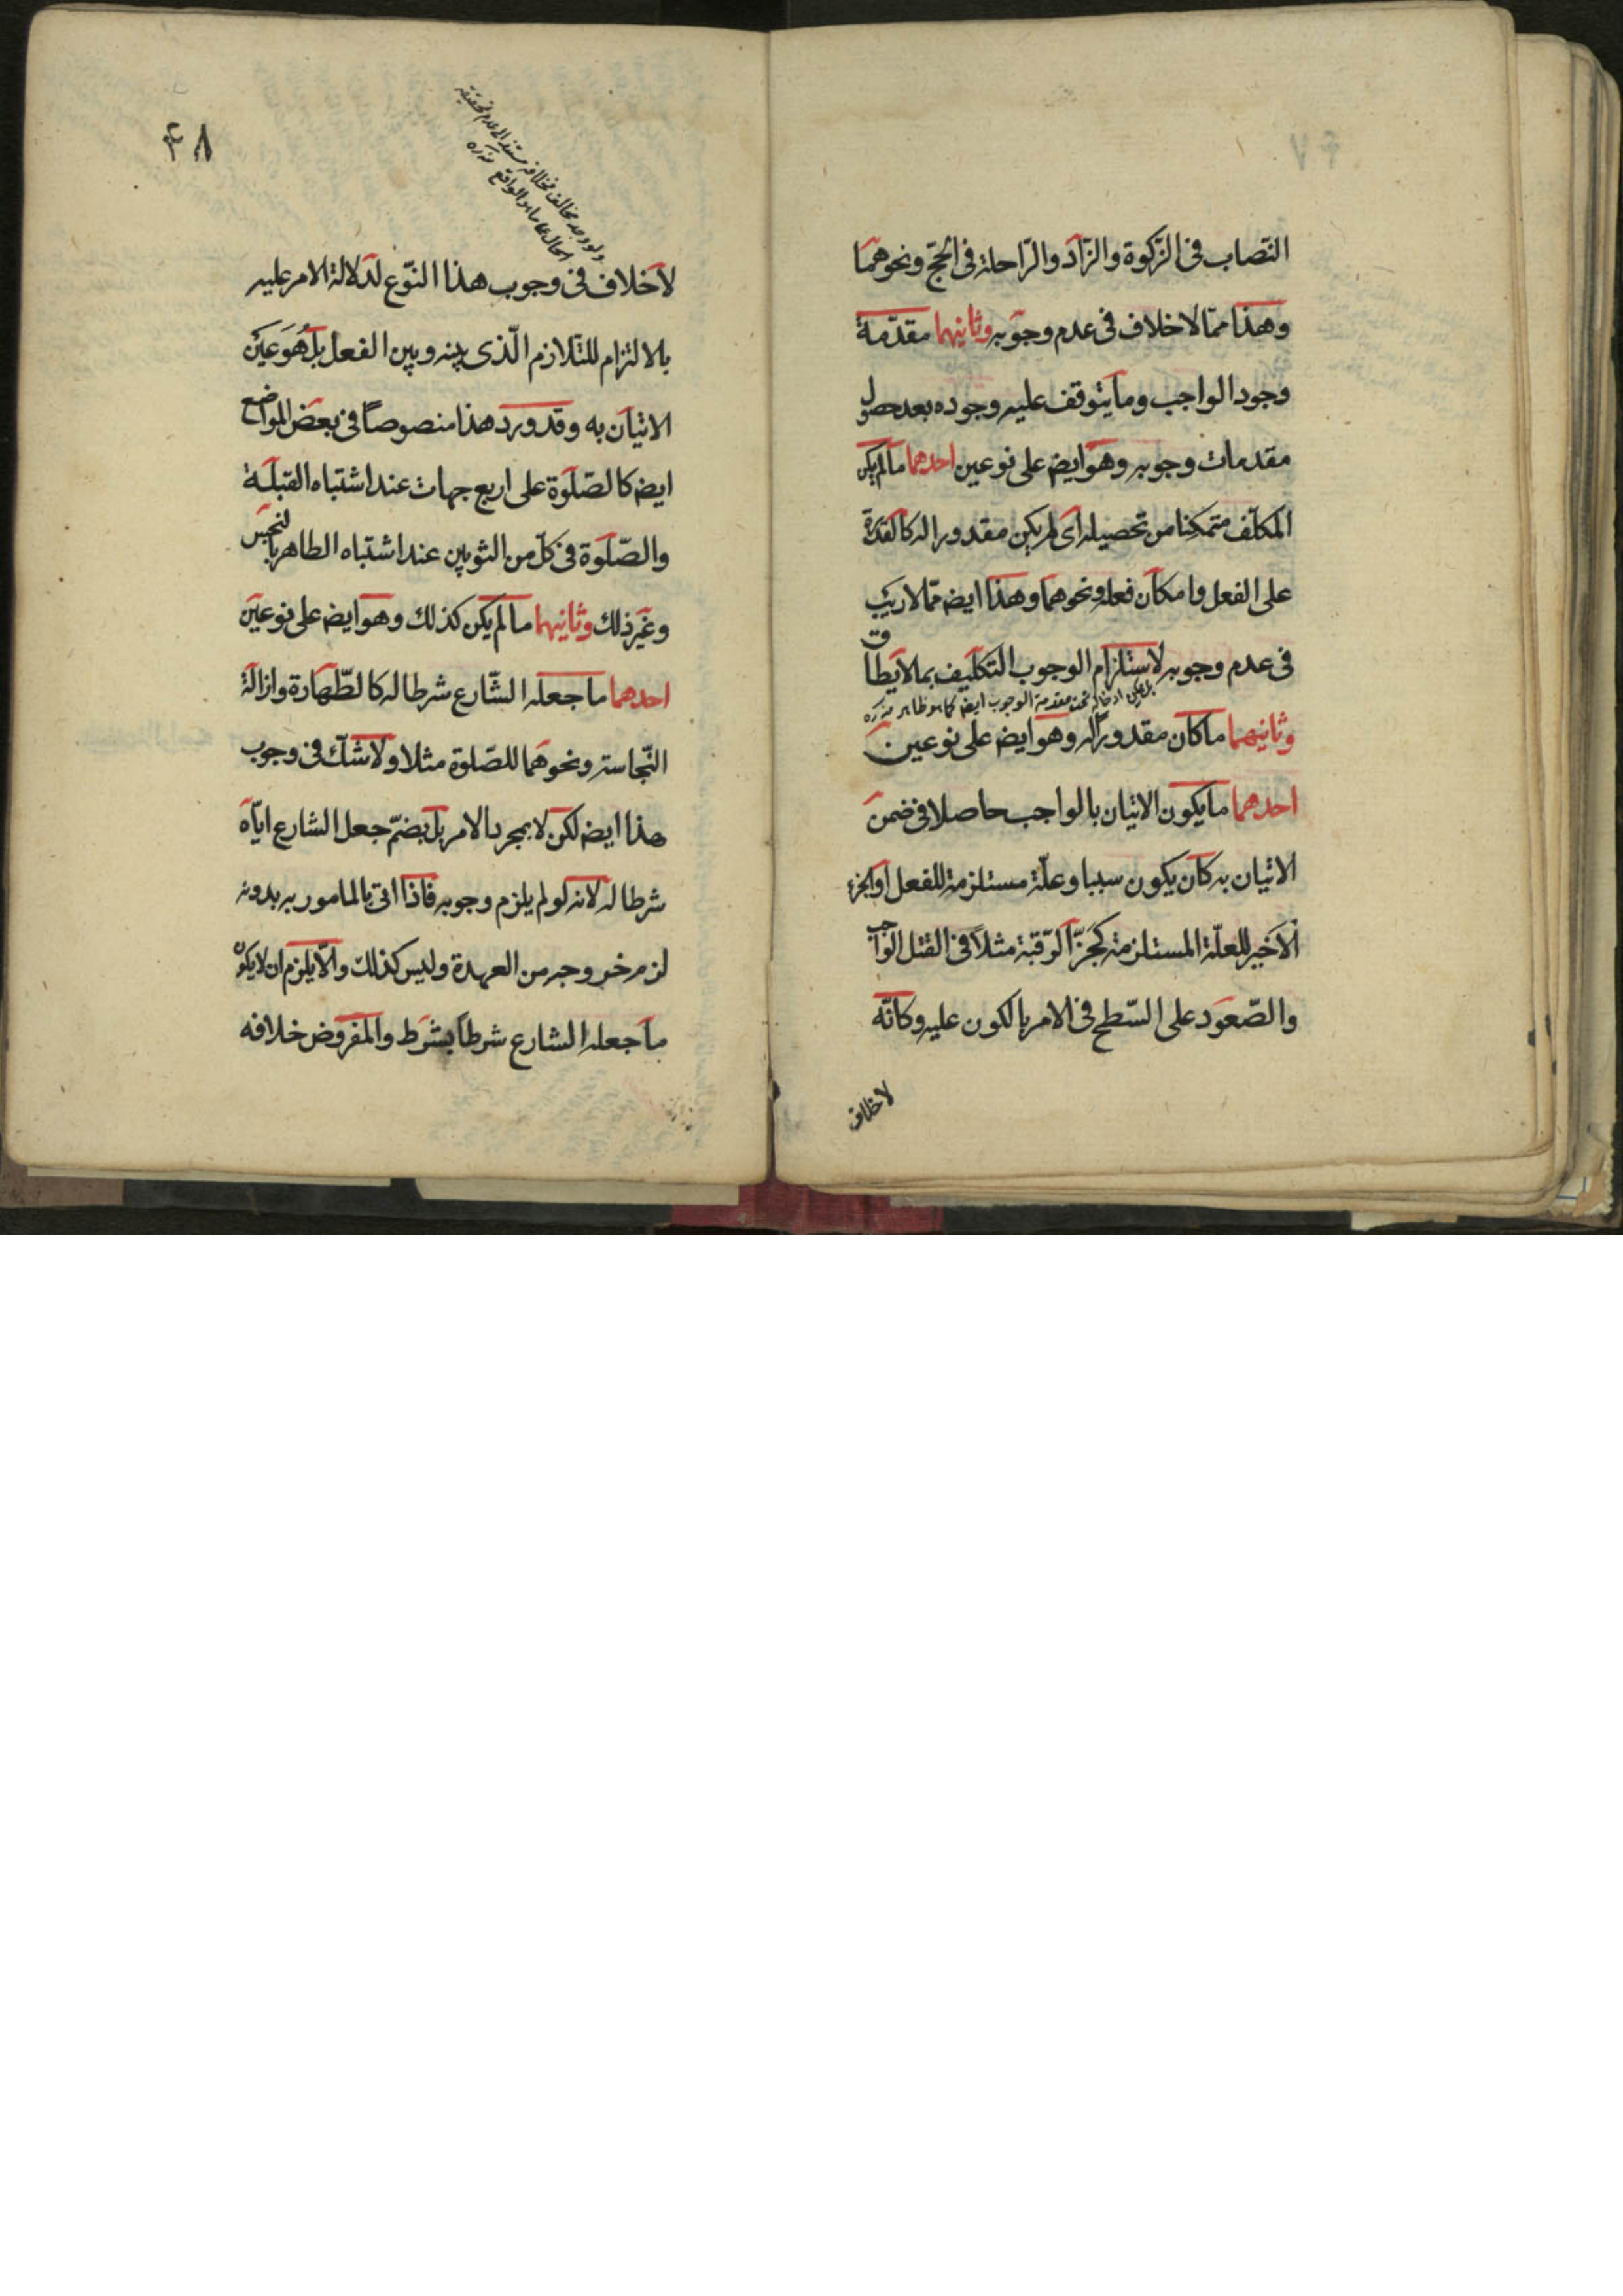 النّصاب فى الزّكوة والزّاد والرّاحلة فى الحجّ ونحوهما
وهذا ممّا لاخلاف فى عدم وجوبه وثانيهما مقدّمة
وجود الواجب وما يتوقف عليه وجوده بعد حصول
مقدمات وجوبه وهو ايضه على نوعين احدهما ما لم يكن
المكلّف متمكنا من تحصيله اى لم يكن مقدورا له كالقدرة
على الفعل وامكان فعله ونحوهما وهذا ايضه ممّا لا ريب
فى عدم وجوبه لاستلزام الوجوب التكليف بما لا يطاق
بل يمكن ادخاله تحت مقدمة الوجوب ايضه كما هو ظاهر منه ره
وثانيهما ما كان مقدورا له وهو ايضه على نوعين
احدهما ما يكون الاتيان بالواجب حاصلا فى ضمن
الاتيان به كان يكون سببا وعلّة مستلزمة للفعل اوالجزء
الاخير للعلّة المستلزمة كجزّ الرّقبة مثلاً فى القتل الواجب
والصّعود على السّطح فى الامر بالكون عليه وكانّه
لاخلاف
٤٨
ولو وجد مخالف فخلافه مستند الى عدم تحقيقه
الحال على ما هو الواقع منه ره
لاخلاف فى وجوب هذا النّوع لدلالة الامر عليه
بالالتزام للتلازم الّذى بينه وبين الفعل بل هُوَ عَين
الاتيان به وقد ورد هذا منصوصاً فى بعض المواضع
ايضه كالصّلوة على اربع جهات عند اشتباه القبلة
والصّلوة فى كلّ من الثوبين عند اشتباه الطاهر بالنجس
وغير ذلك وثانيهما ما لم يكن كذلك وهو ايضه على نوعين
احدهما ما جعله الشّارع شرطا له كالطّهارة وازالة
النّجاسة ونحوهما للصّلوة مثلا ولا شكّ فى وجوب
هذا ايضه لكن لا بمجرد الامر بل بضمّ جعل الشارع ايّاه
شرطا له لانه لو لم يلزم وجوبه فاذا اتى بالمامور به بدونه
لزم خروجه من العهدة وليس كذلك والّا يلزم ان لا يكون
ما جعله الشارع شرطاً بشرط والمفروض خلافه